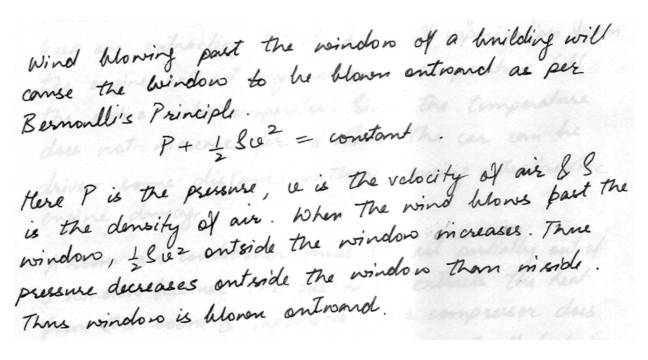 Wind blowing past the window of a building will
cause the window to be blown outward as per
Bernoulli's Principle.
P + 1/2 ρv² = constant.
Here P is the pressure, v is the velocity of air & ρ
is the density of air. When the wind blows past the
window, 1/2 ρv² outside the window increases. Thus
pressure decreases outside the window than inside.
Thus window is blown outward.